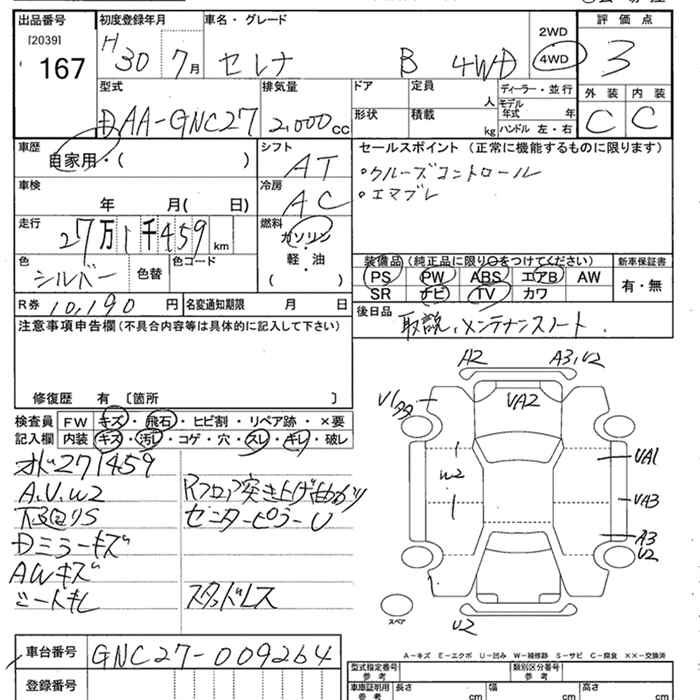 出品番号 初度登録年月 車名・グレード 評価点
[2039] 167 H30 7月 セレナ B 4WD 2WD 4WD 3
外装 内装
C C
型式 排気量 ドア 定員 人 ディーラー・並行
DAA-GNC27 2,000cc 形状 積載 kg モデル年式 年
ハンドル 左・右
車歴 自家用・( ) シフト AT セールスポイント (正常に機能するものに限ります)
・クルーズコントロール
・エマブレ
車検 年 月( 日) 冷房 AC
走行 27万1千459km 燃料 ガソリン・軽・油 ( )
装備品(純正品に限り○をつけてください) 新車保証書
PS PW ABS エアB AW 有・無
SR ナビ TV カワ
色 シルバー 色替 色コード
R券 10,190円 名変通知期限 月 日
後日品 取説、メンテナンスノート.
注意事項申告欄(不具合内容等は具体的に記入して下さい)
修復歴 有 〔箇所 〕
検査員 FW キズ・飛石・ヒビ割・リペア跡・×要
記入欄 内装 キズ・汚れ・コゲ・穴・スレ・キレ・破レ
オド271459
A.U.W2 Rフロア突き上げ曲がり
下回りS センターピラーU
ドミラーキズ
AWキズ
シートキレ スタッドレス
H2 A3,U2
VA2
W2
UA1
UA3
A3
U2
スペア
U2
A-キズ E-エクボ U-凹み W-補修跡 S-サビ C-腐食 XX-交換済
車台番号 GNC27-009264
登録番号
型式指定番号 参考 類別区分番号 参考
車庫証明用 参考 長さ cm 幅 cm 高さ cm